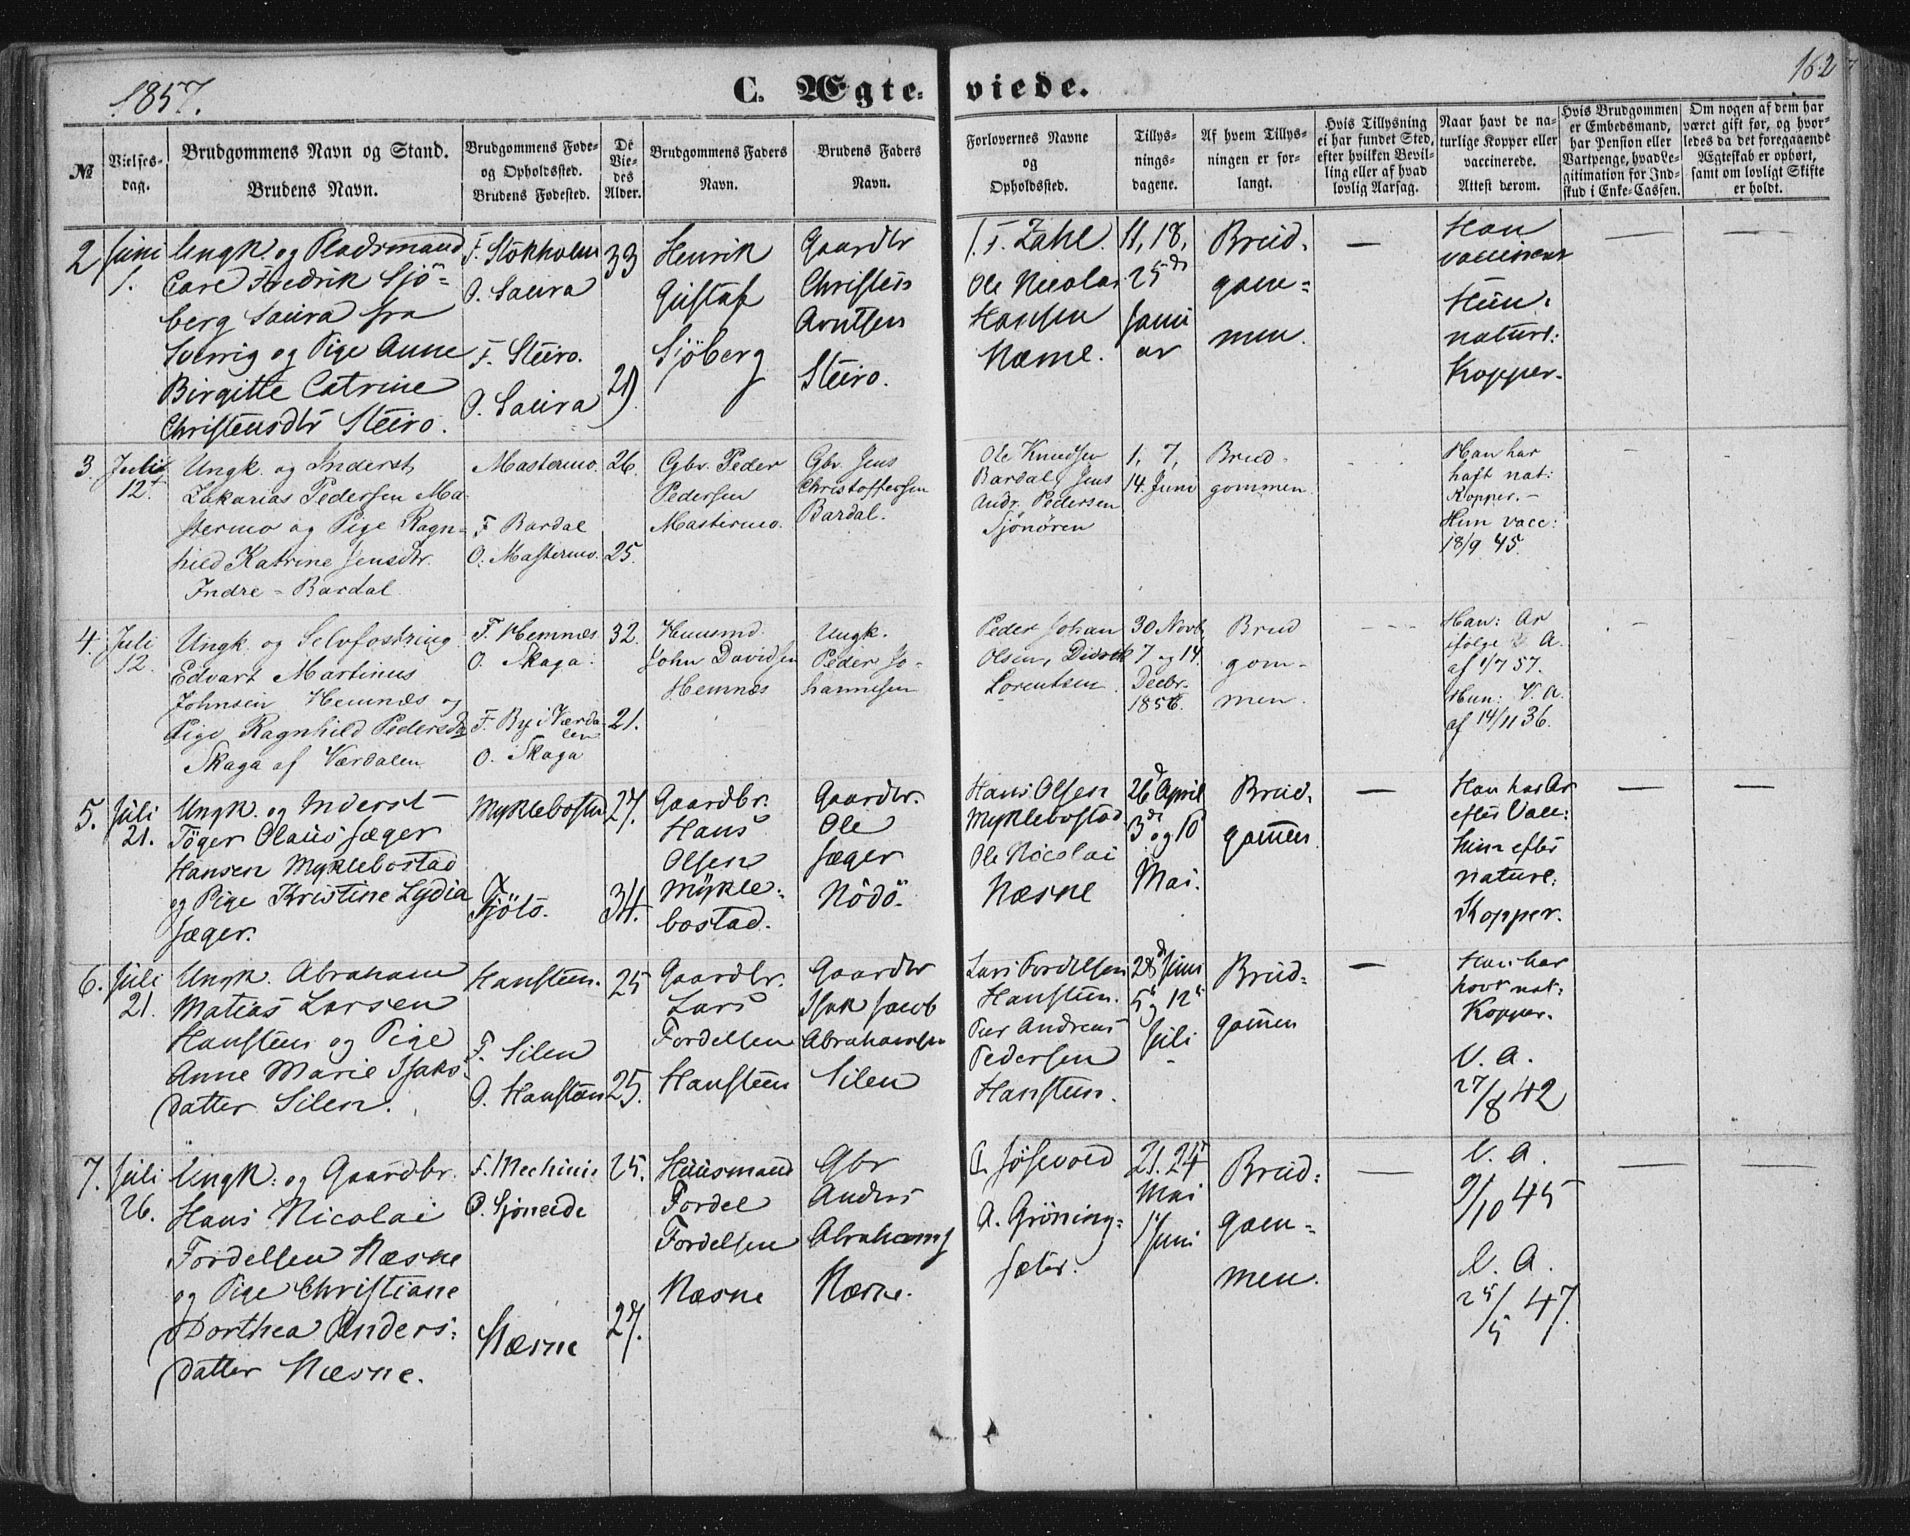 1857.
C. Ægte-viede.
162
№
Vielses-dag.
Brudgommens Navn og Stand.
Brudens Navn.
Brudgommens Føde-
og Opholdssted.
Brudens Fødested.
De
Vie-
des
Alder.
Brudgommens Faders
Navn.
Brudens Faders
Navn.
Forlovernes Navne
og
Opholdssted.
Tillys-
nings-
dagene.
Af hvem Tillys-
ningen er for-
langt.
Hvis Tillysning
ei har fundet Sted,
efter hvilken Bevil-
ling eller af hvad
lovlig Aarsag.
Naar havt de na-
turlige Kopper eller
vaccinerede.
Attest derom.
Hvis Brudgommen
er Embedsmand,
har Pension eller
Vartpenge, hvad Le-
gitimation for Ind-
skud i Enke-Cassen.
Om nogen af dem har
været gift før, og hvor-
ledes da det foregaaende
Ægteskab er ophørt,
samt om lovligt Skifte
er holdt.
2
Juni
1.
Ungk. og Pladsmand
Carl Fredrik Sjö-
berg Saura fra
Sverrig og Pige Anne
Birgitte Catrine
Christensdtr Steiro.
F. Stokholm
O. Saura
F. Steiro.
O. Saura
33
Henrik
Gustaf
Sjöberg
Gaardbr
Christen
Arntsen
Steiro.
J. F. Zahl.
Ole Nicolai
Hansen
Næsne.
11, 18,
25de
Janu
ar
Brud-
gom-
men.
—
Han
vaccineret
Hun:
naturl:
Kopper.
—
—
3
Juli
12.
Ungk. og Inderst
Zakarias Pedersen Ma-
stermo og Pige Ragn-
hild Katrine Jensdtr.
Indre-Bardal.
Mastermo.
F Bardal
O: Mastermo.
26.
25.
Gbr. Peder
Pedersen
Mastermo.
Gbr. Jens
Christoffersen
Bardal.
Ole Knudsen
Bardal, Jens
Andr. Pedersen
Sjönören
1, 7,
14. Juni
Brud-
gommen.
Han har
haft nat:
Kopper. -
Hun vacc:
18/9 45.
4.
Juli
12.
Ungk. og Selvfostring
Edvart Martinus
Johnsen Hemnæs og
Pige Ragnhild Pedersd
Skaga af Værdalen
F. Hemnæs
O. Skaga.
F. By i Værda
len
O. Skaga
32.
21.
Huusmd.
John Davidsen
Hemnæs
Ungk.
Peder Jo-
hannesen
Peder Johan
Olsen, Didrik
Lorentsen.
30 Novb,
7 og 14.
Decbr.
1856.
Brud
gom-
men.
Han: Ar
ifølge V. A.
af 1/7 57.
Hun: V. A.
af 14/11 36.
5.
Juli
21.
Ungk. og Inderst
Töger Olaus Jæger
Hansen Myklebostad
og Pige Kristine Lydia
Jæger.
Myklebostad
Tjötö.
27.
34.
Gaardbr.
Hans
Olsen
Mykle-
bostad.
Gaardbr.
Ole
Jæger
Nödö.
Hans Olsen
Myklebostad
Ole Nicolai
Næsne
26d April
3de og 10
Mai.
Brud-
gommen
—
Han har Ar
efter Vacc:
Hun efter
naturl:
Kopper.
—
—
6.
Juli
21.
Ungk. Abraham
Matias Larsen
Hansteen og Pige
Anne Marie Isaks-
datter Silen.
Hansteen.
F. Silen
O. Hansteen
25
25.
Gaardbr.
Lars
Fordelsen
Hansteen
Gaardbr
Isak Jacob
Abrahamsen
Silen
Lars Fordelsen
Hansteen.
Per Andreas
Pedersen
Hansteen.
28d Juni
5 og 12
Juli
Brud-
gommen
—
Han har
havt nat:
Kopper.
V. A.
27/8 42
7.
Juli
26.
Ungk: og Gaardbr.
Hans Nicolai
Fordelsen Næsne
og Pige Christiane
Dorthea Anders-
datter Næsne.
O. Sjoneide
Næsne
25.
27.
Huusmand
Fordel
Fordelsen
Næsne
Gbr
Anders
Abrahams
Næsne.
A. Gröning-
sæter.
21. 24
Mai
1 Juni
Brud-
gom-
men.
—
V. A.
9/10 45
V. A.
25/5 47.
—
—